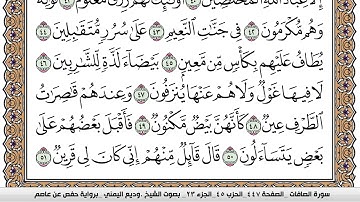 إِلَّا عِبَادَ ٱللَّهِ ٱلْمُخْلَصِينَ ٤٠ أُو۟لَـٰٓئِكَ لَهُمْ رِزْقٌ مَّعْلُومٌ ٤١ فَوَٰكِهُ
وَهُم مُّكْرَمُونَ ٤٢ فِى جَنَّـٰتِ ٱلنَّعِيمِ ٤٣ عَلَىٰ سُرُرٍ مُّتَقَـٰبِلِينَ ٤٤
يُطَافُ عَلَيْهِم بِكَأْسٍ مِّن مَّعِينٍۭ ٤٥ بَيْضَآءَ لَذَّةٍ لِّلشَّـٰرِبِينَ ٤٦
لَا فِيهَا غَوْلٌ وَلَا هُمْ عَنْهَا يُنزَفُونَ ٤٧ وَعِندَهُمْ قَـٰصِرَٰتُ
ٱلطَّرْفِ عِينٌ ٤٨ كَأَنَّهُنَّ بَيْضٌ مَّكْنُونٌ ٤٩ فَأَقْبَلَ بَعْضُهُمْ عَلَىٰ
بَعْضٍ يَتَسَآءَلُونَ ٥٠ قَالَ قَآئِلٌ مِّنْهُمْ إِنِّى كَانَ لِى قَرِينٌ ٥١
سورة الصافات _الصفحة ٤٤٧_الحزب ٤٥_الجزء ٢٣ _بصوت الشيخ _وديع اليمني _برواية حفص عن عاصم